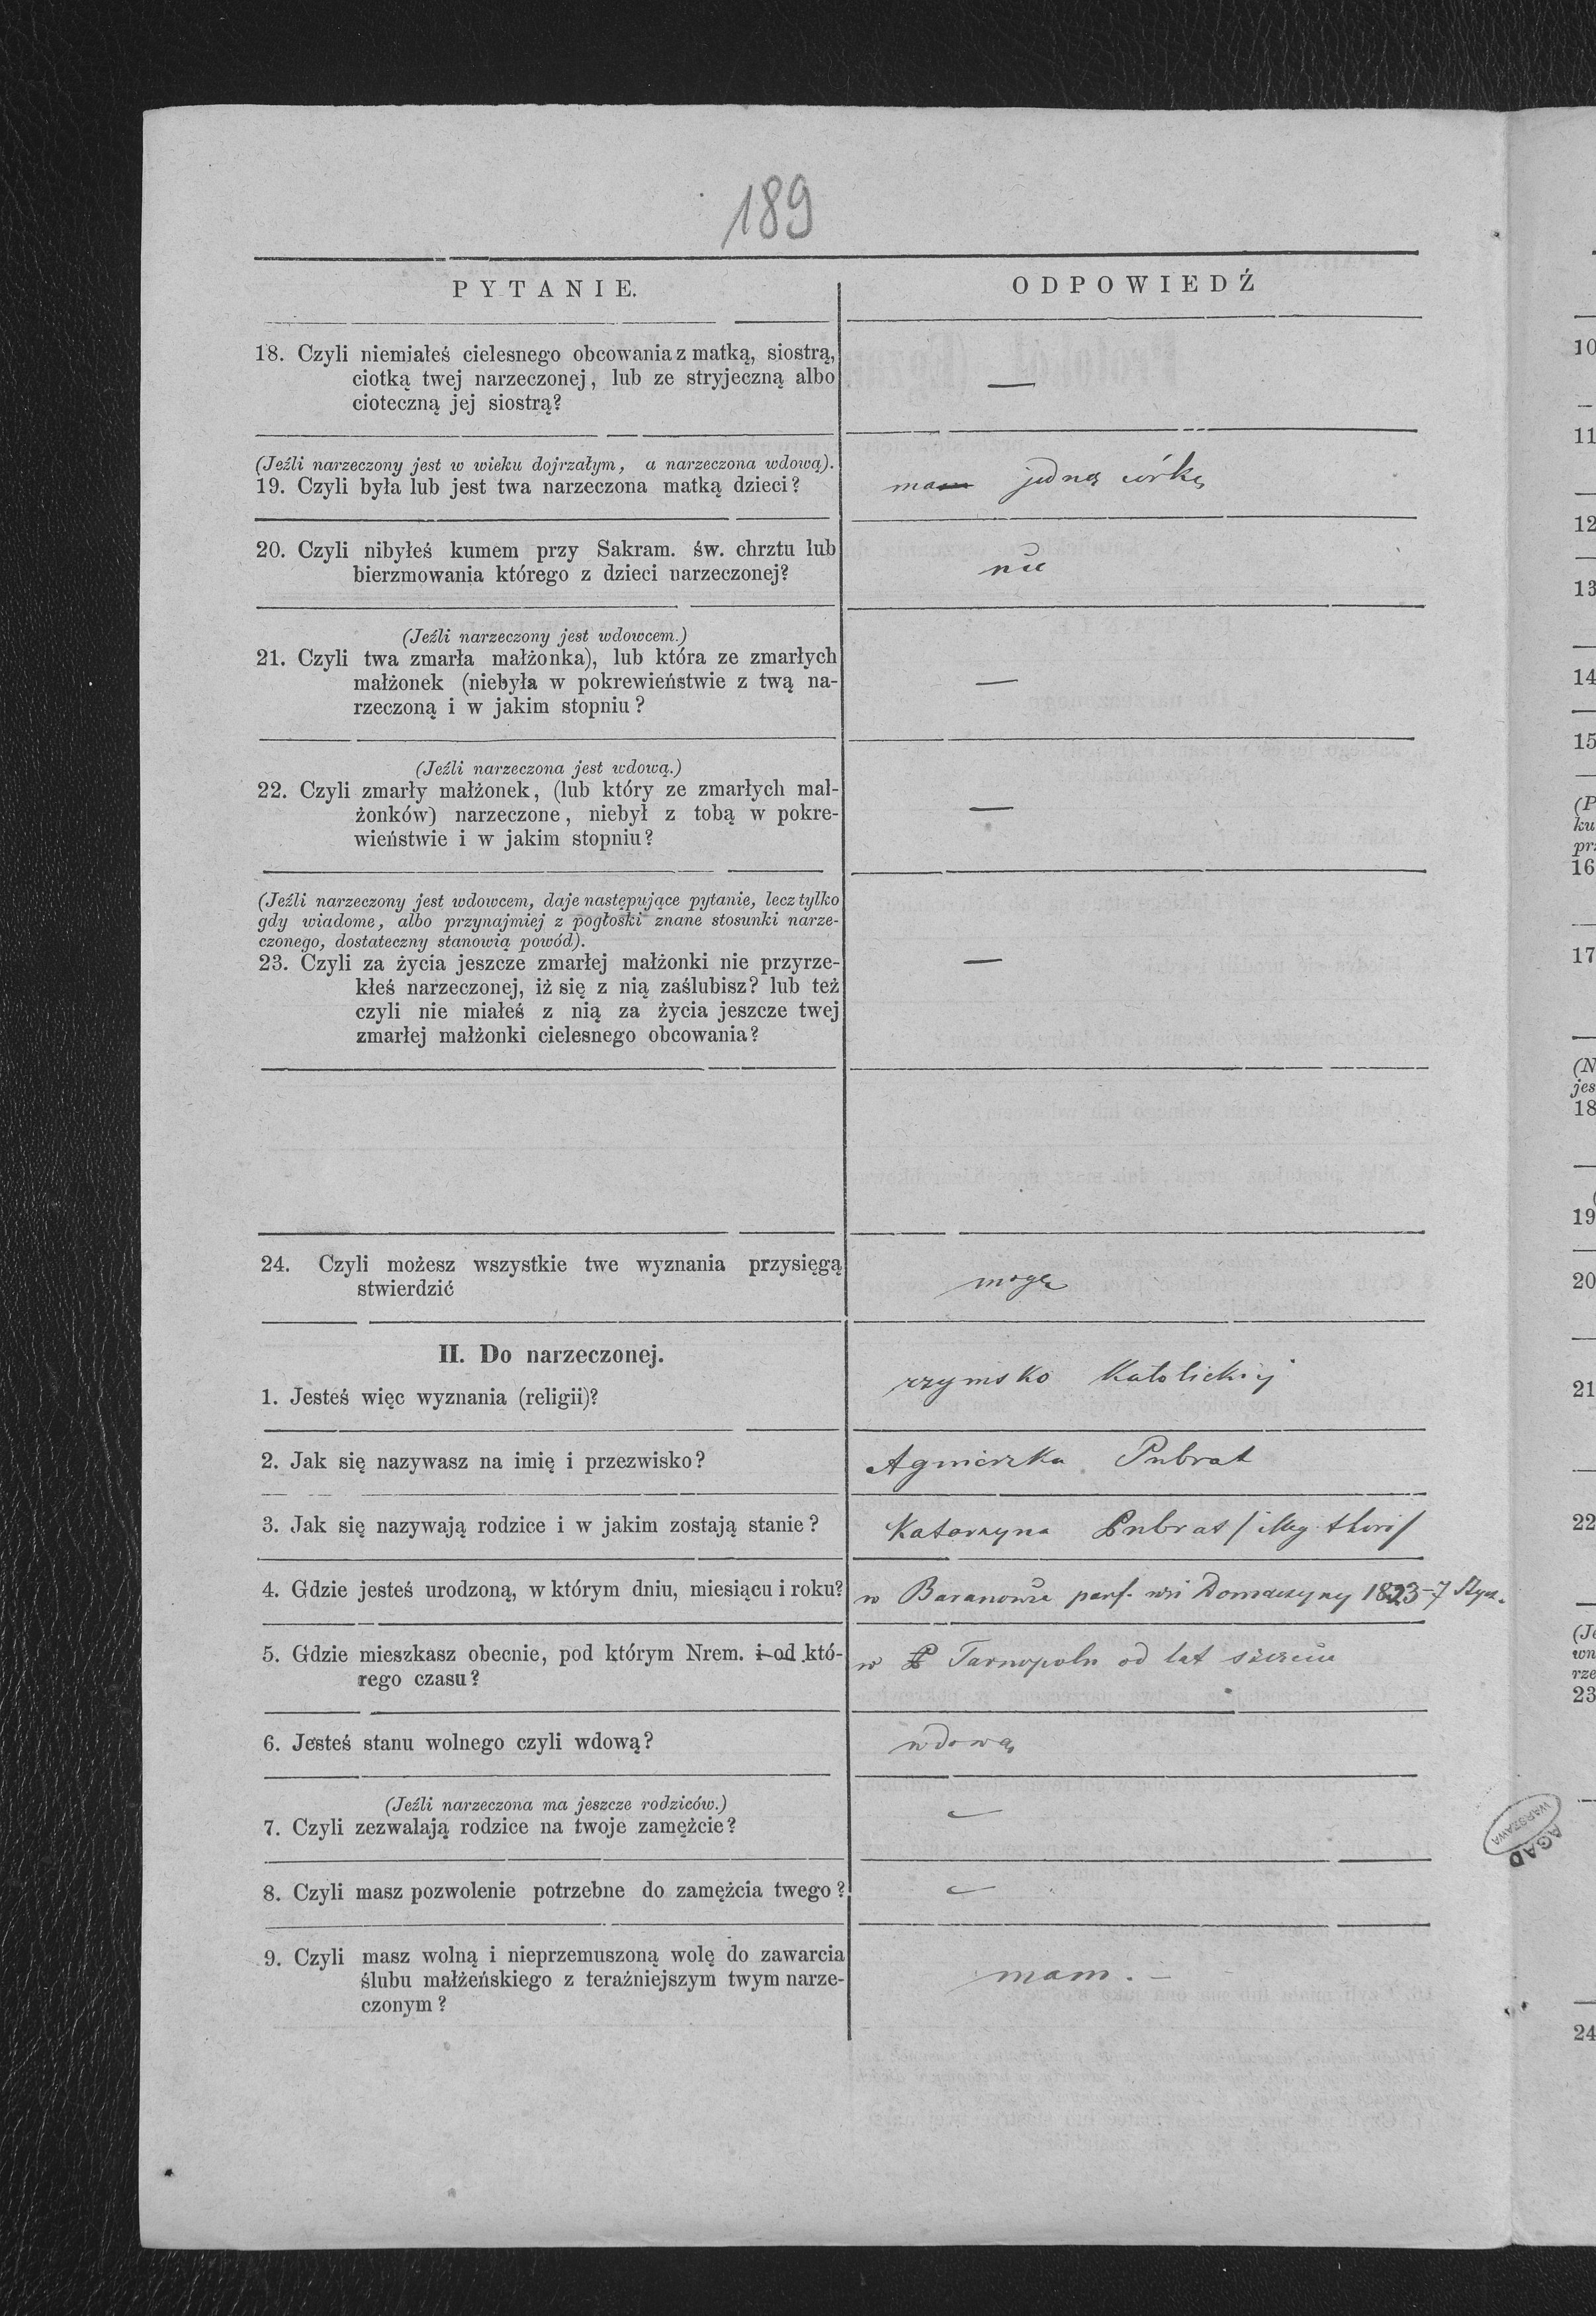 189
PYTANIE.
ODPOWIEDŹ
18. Czyli niemiałeś cielesnego obcowania z matką, siostrą,
ciotką twej narzeczonej, lub ze stryjeczną albo
cioteczną jej siostrą?
—
(Jeźli narzeczony jest w wieku dojrzałym, a narzeczona wdową).
19. Czyli była lub jest twa narzeczona matką dzieci?
mam jedną córkę
20. Czyli nibyłeś kumem przy Sakram. św. chrztu lub
bierzmowania którego z dzieci narzeczonej?
nie
(Jeźli narzeczony jest wdowcem.)
21. Czyli twa zmarła małżonka), lub która ze zmarłych
małżonek (niebyła w pokrewieństwie z twą na-
rzeczoną i w jakim stopniu?
—
(Jeźli narzeczona jest wdową.)
22. Czyli zmarły małżonek, (lub który ze zmarłych mal-
żonków) narzeczone, niebył z tobą w pokre-
wieństwie i w jakim stopniu?
—
(Jeźli narzeczony jest wdowcem, daje następujące pytanie, lecz tylko
gdy wiadome, albo przynajmiej z pogłoski znane stosunki narze-
czonego, dostateczny stanowią powód).
23. Czyli za życia jeszcze zmarłej małżonki nie przyrze-
kłeś narzeczonej, iż się z nią zaślubisz? lub też
czyli nie miałeś z nią za życia jeszcze twej
zmarłej małżonki cielesnego obcowania?
—
24. Czyli możesz wszystkie twe wyznania przysięgą
stwierdzić
mogę
II. Do narzeczonej.
1. Jesteś więc wyznania (religii)?
rzymsko Katolickiej
2. Jak się nazywasz na imię i przezwisko?
Agnieszka Pubrat
3. Jak się nazywają rodzice i w jakim zostają stanie?
Katarzyna Pubrat
4. Gdzie jesteś urodzoną, w którym dniu, miesiącu i roku?
w Baranowie parf. wsi 1823 - 7 Stycz.
5. Gdzie mieszkasz obecnie, pod którym Nrem. i od któ-
rego czasu?
w Tarnopolu od lat sześciu
6. Jesteś stanu wolnego czyli wdową?
wdową
(Jeźli narzeczona ma jeszcze rodziców.)
7. Czyli zezwalają rodzice na twoje zamężcie?
8. Czyli masz pozwolenie potrzebne do zamężcia twego?
9. Czyli masz wolną i nieprzemuszoną wolę do zawarcia
ślubu małżeńskiego z teraźniejszym twym narze-
czonym?
mam. -
10
11
12
13
14
15
(P
ku
prz
16
17
(N
jes
18
19
20
21
22
(Je
wn
rze
23
24
AGAD
WARSZAWA